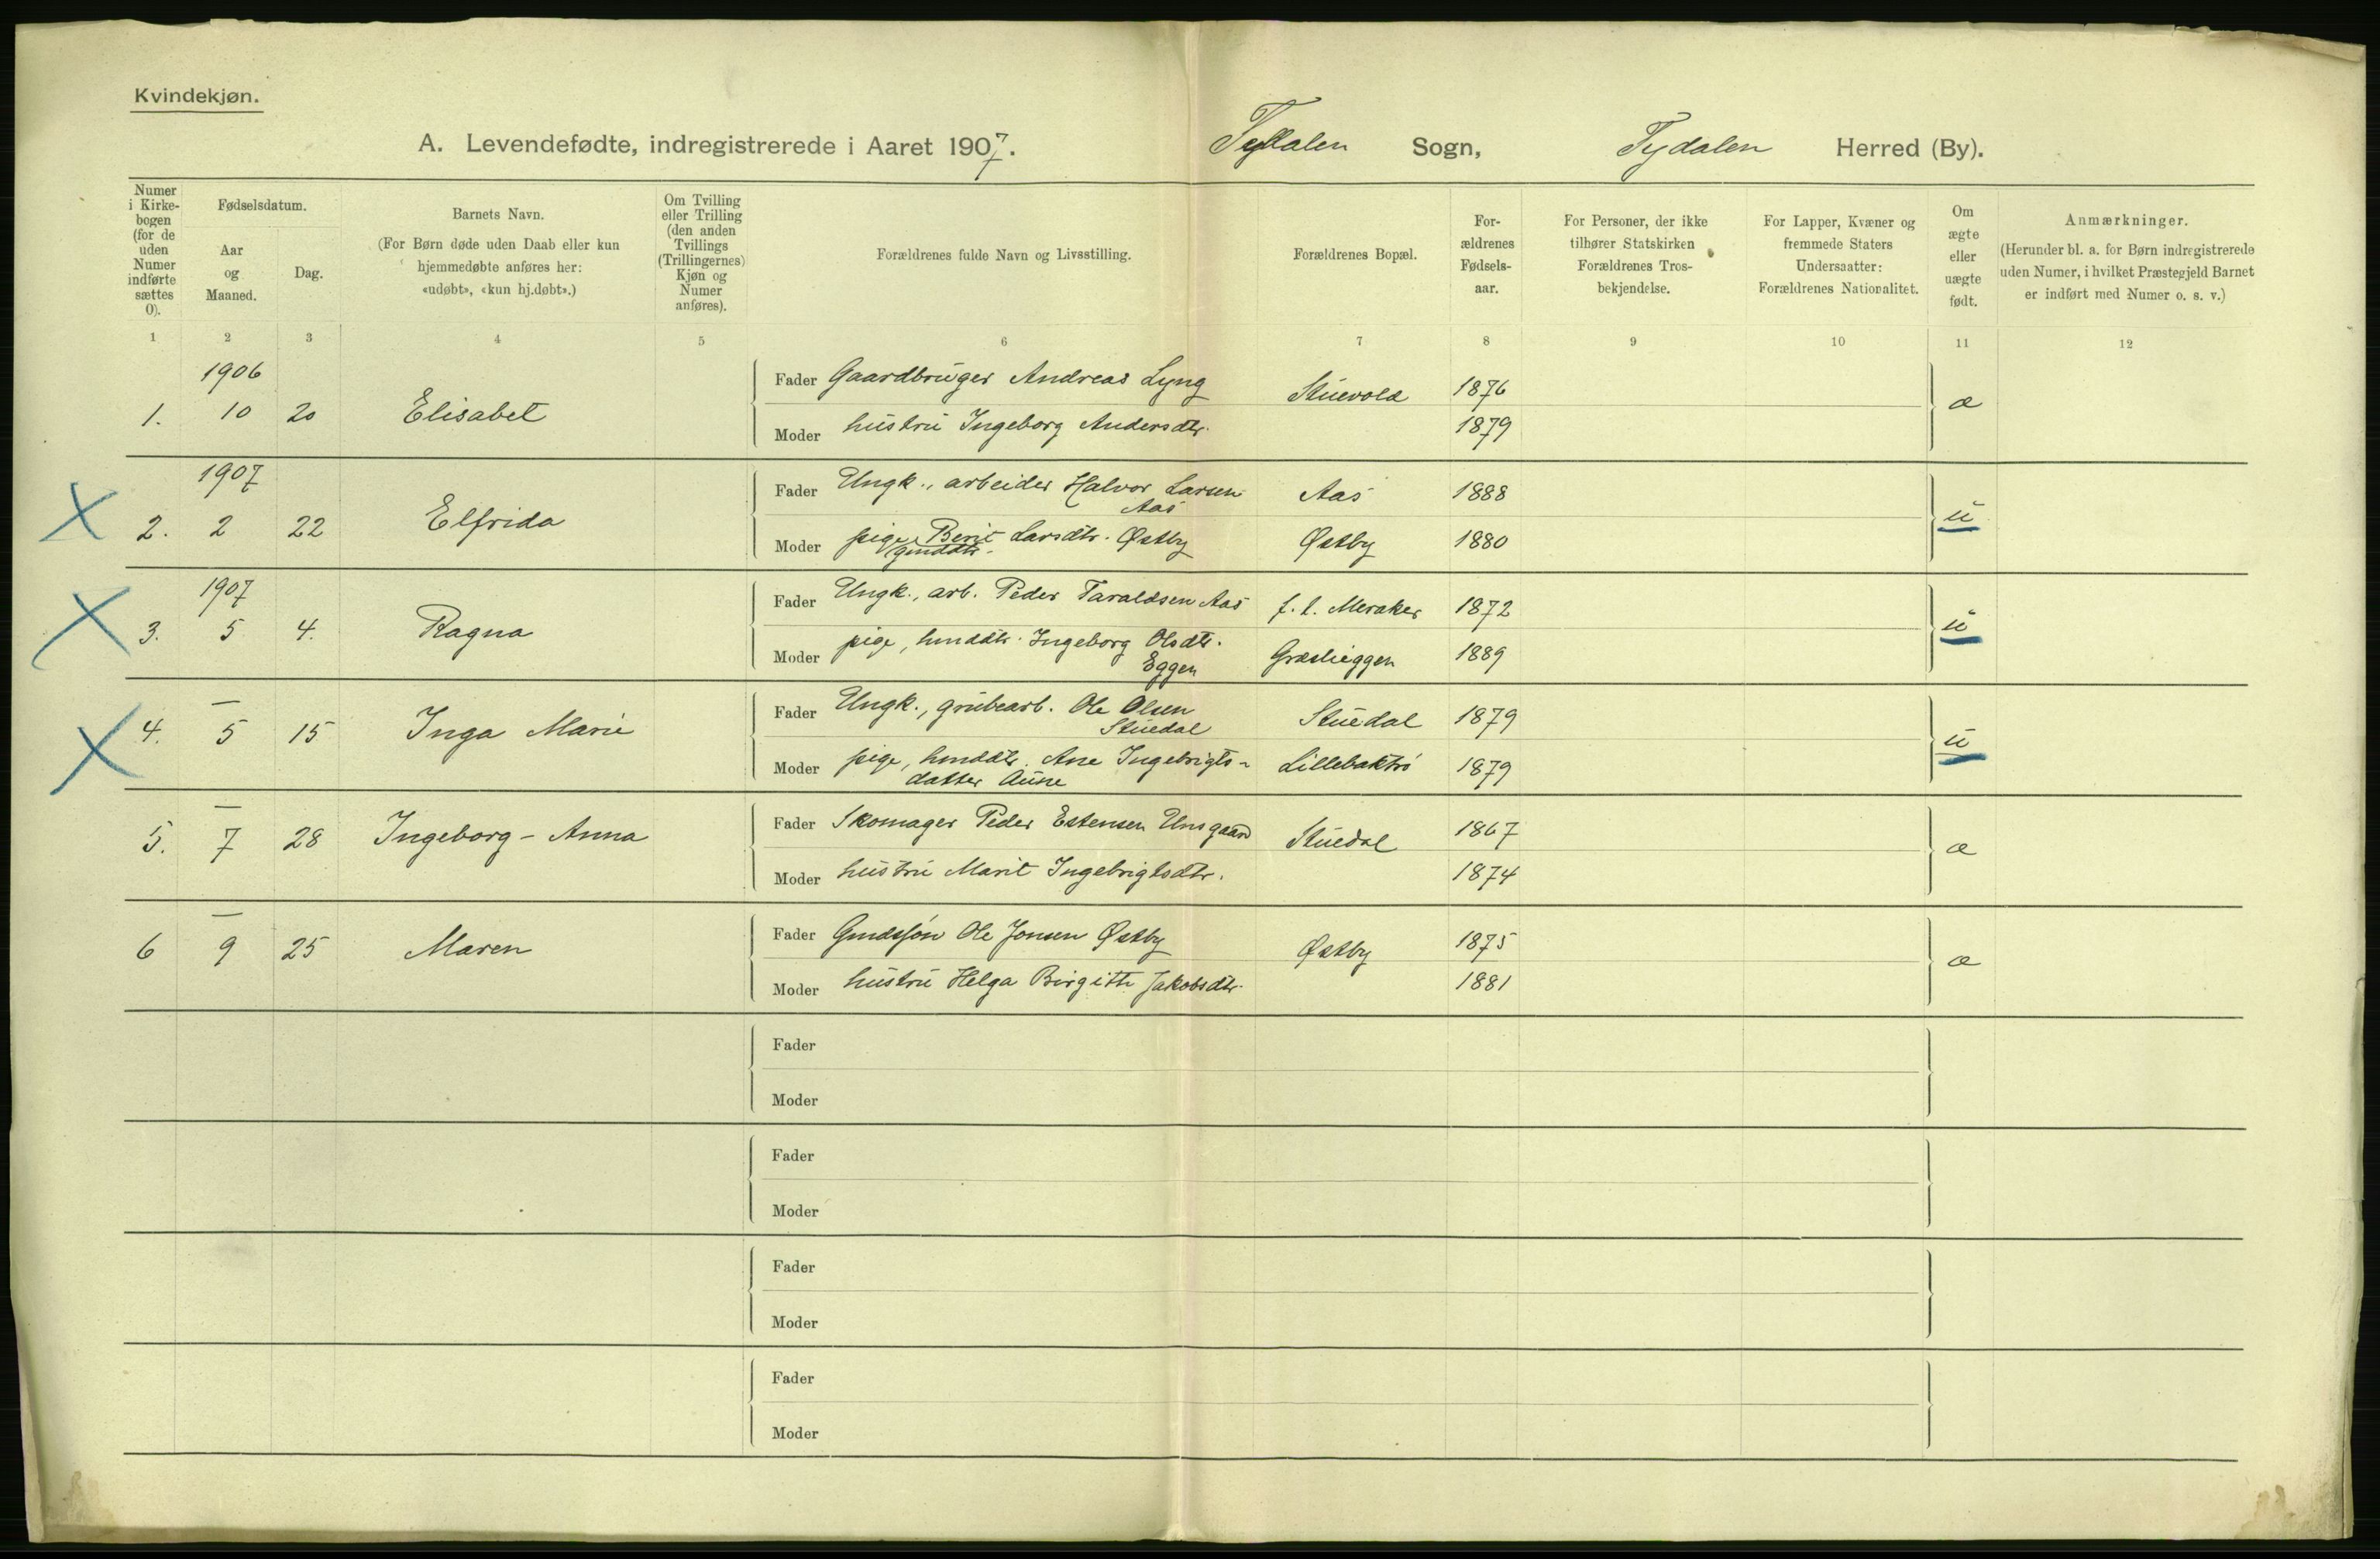 Kvindekjøn.
A. Levendefødte, indregistrerede i Aaret 1907. Tydalen Sogn, Tydalen Herred (By).
Numer i Kirke-bogen (for de uden Numer indførte sættes 0).
Fødselsdatum.
Aar og Maaned.
Dag.
Barnets Navn.
(For Børn døde uden Daab eller kun hjemmedøbte anføres her: «udøbt», «kun hj.døbt».)
Om Tvilling eller Trilling (den anden Tvillings (Trillingernes) Kjøn og Numer anføres).
Forældrenes fulde Navn og Livsstilling.
Forældrenes Bopæl.
For-ældrenes Fødsels-aar.
For Personer, der ikke tilhører Statskirken Forældrenes Tros-bekjendelse.
For Lapper, Kvæner og fremmede Staters Undersaatter: Forældrenes Nationalitet.
Om ægte eller uægte født.
Anmærkninger.
(Herunder bl. a. for Børn indregistrerede uden Numer, i hvilket Præstegjeld Barnet er indført med Numer o. s. v.)
1 2 3 4 5 6 7 8 9 10 11 12
1906
Fader Gaardbruger Andreas Lyng Stuevold 1876
1. 10 20 Elisabet æ
Moder hustru Ingeborg Andersdtr. 1879
1907
Fader Ungk., arbeider Halvor Larsen Aas 1888
Aas
X 2. 2 22 Elfrida u
Moder pige Berit Larsdtr. Østby Østby 1880
gmddtr.
1907
Fader Ungk., arb. Peder Taraldsen Aas f. t. Meraker 1872
X 3. 5 4. Ragna u
Moder pige, hmddtr. Ingeborg Olsdtr. Græslieggen 1889
Eggen
—
Fader Ungk., grubearb. Ole Olsen Stuedal 1879
Stuedal
X 4. 5 15 Inga Marie u
Moder pige, hmddtr. Ane Ingebrigts- Lillebaktrø 1879
datter Aune
—
Fader Skomager Peder Estensen Unsgaard Stuedal 1867
5. 7 28 Ingeborg - Anna æ
Moder hustru Marit Ingebrigtsdtr. 1874
—
Fader Gmdssøn Ole Jonsen Østby Østby 1875
6 9 25 Maren æ
Moder hustru Helga Birgitte Jakobsdtr. 1881
Fader
Moder
Fader
Moder
Fader
Moder
Fader
Moder